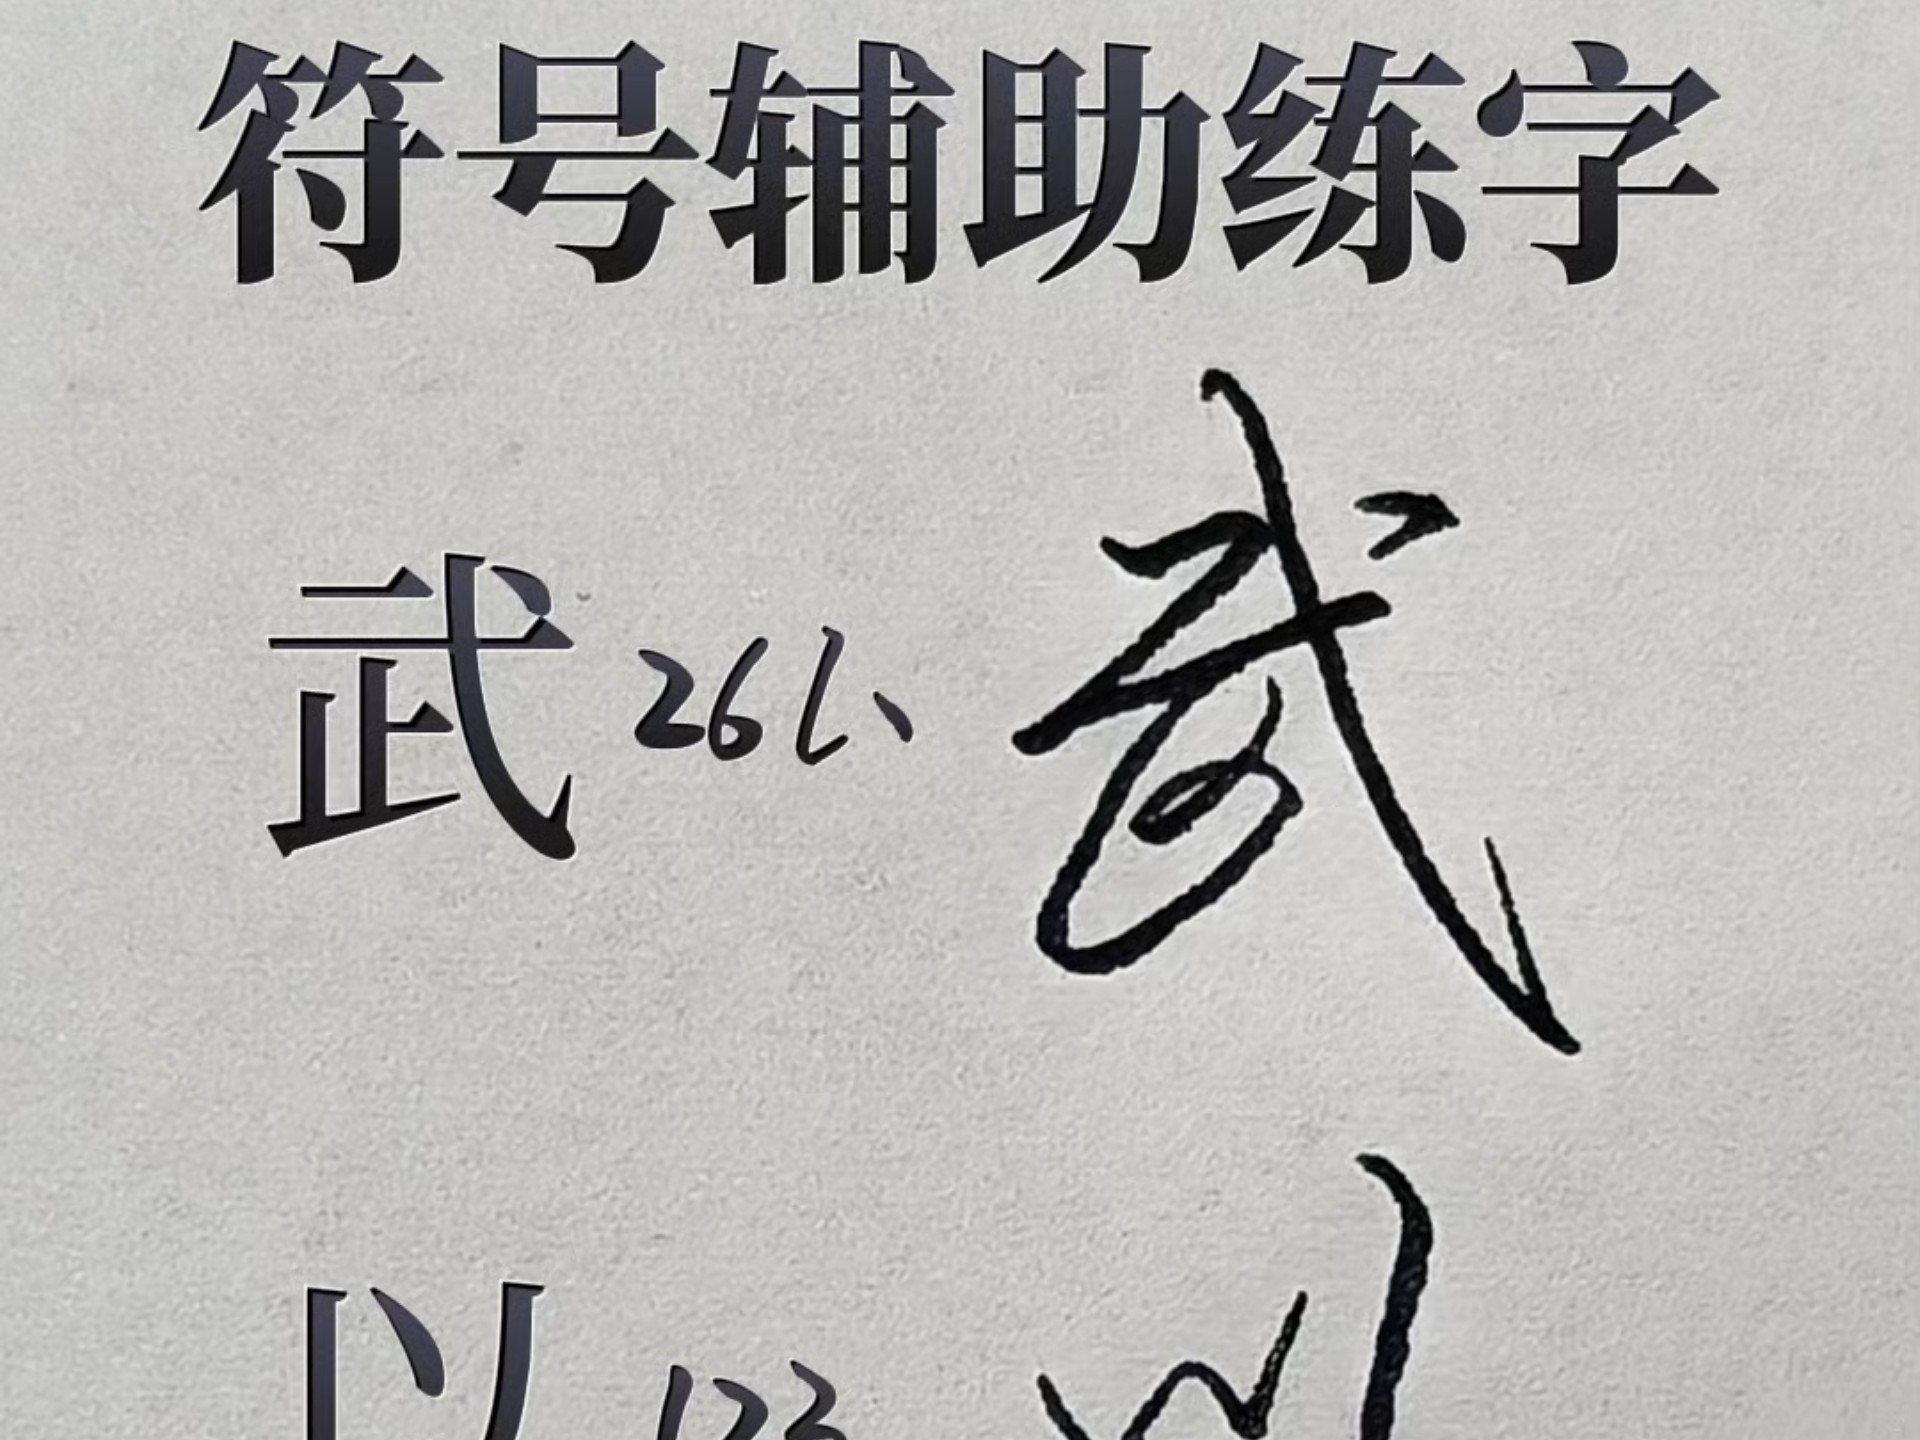 符号辅助练字
武 26乚、 武
以